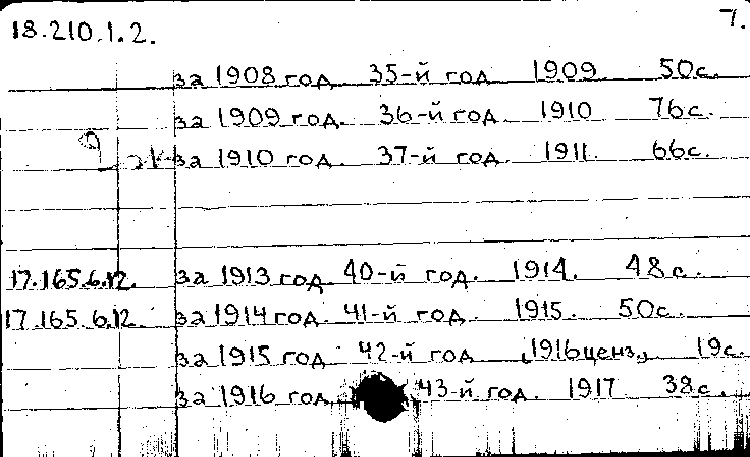 18.210.1.2. 7.
за 1908 год 35-й год 1909 50с.
за 1909 год. 36-й год 1910 76с.
за 1910 год. 37-й год. 1911. 66с.
17.165.6.12. за 1913 год. 40-й год. 1914. 48с.
17.165.6.12. за 1914 год. 41-й год. 1915. 50с.
за 1915 год 42-й год „1916ценз„ 19с.
за 1916 год 43-й год. 1917 38с.